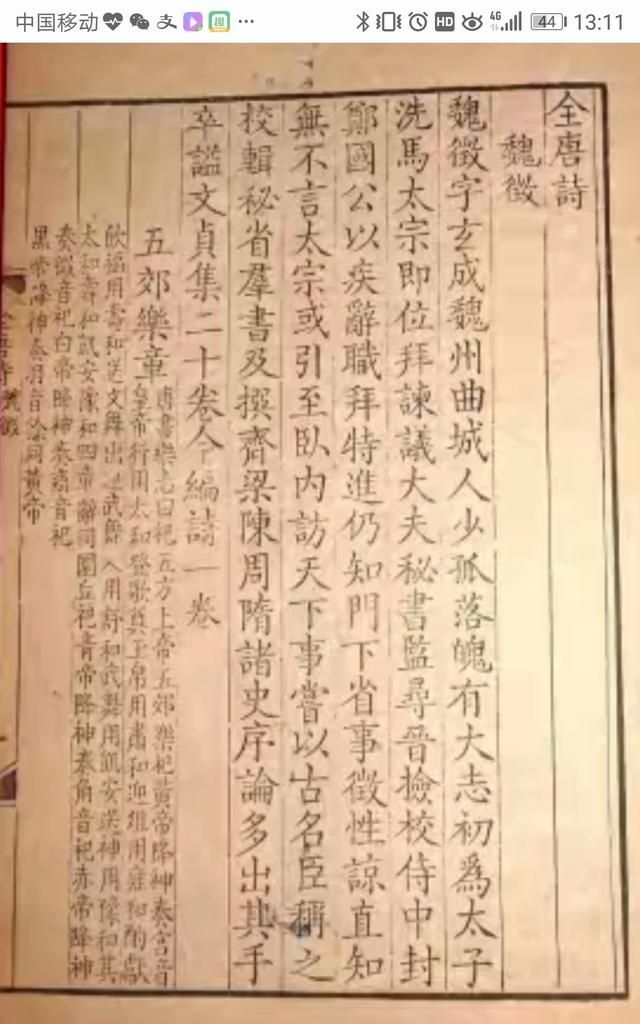 中国移动 HD 4G 44 13:11
全唐詩
魏徵
魏徵字玄成魏州曲城人少孤落魄有大志初為太子
洗馬太宗即位拜諫議大夫秘書監尋晉撿校侍中封
鄭國公以疾辭職拜特進仍知門下省事徵性諒直知
無不言太宗或引至臥内訪天下事嘗以古名臣稱之
校輯秘省羣書及撰齊梁陳周隋諸史序論多出其手
卒謚文貞集二十卷今編詩一卷
五郊樂章
唐書樂志曰祀五方上帝五郊樂祀黃帝降神奏宮音
皇帝行用太和登歌奠玉帛用肅和迎俎用雍和酌獻
飲福用壽和送文舞出迎武舞入用舒和武舞用凱安送神用豫和其
太和壽和凱安豫和四章辭同圜丘祀青帝降神奏角音祀赤帝降神
奏徵音祀白帝降神奏商音祀
黑帝降神奏羽音餘同黃帝